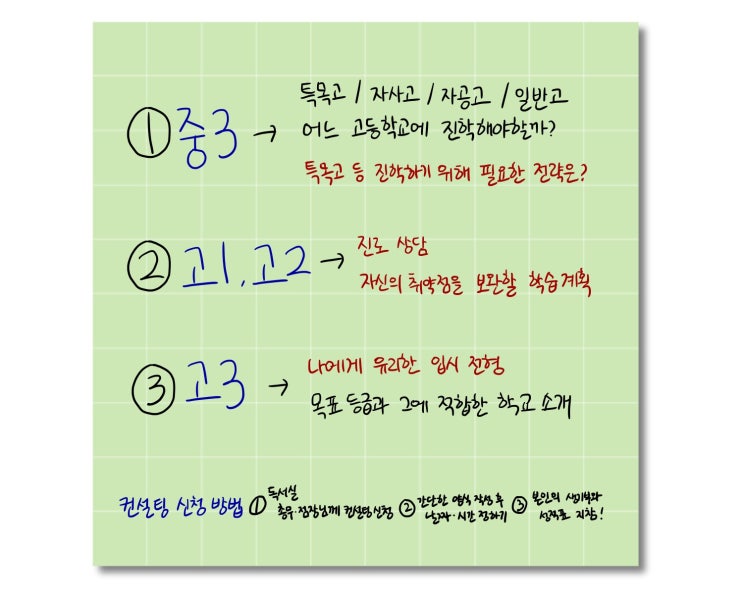 특목고 / 자사고 / 자공고 / 일반고
① 중3 → 어느 고등학교에 진학해야할까?
특목고 등 진학하기 위해 필요한 전략은?
② 고1, 고2 → 진로 상담
자신의 취약점을 보완할 학습계획
③ 고3 → 나에게 유리한 입시 전형
목표 등급과 그에 적합한 학교 소개
컨설팅 신청 방법 ① 독서실
총무·점장님께 컨설팅신청
② 간단한 양식 작성 후
날짜·시간 정하기
③ 본인의 생기부와
성적표 지참!